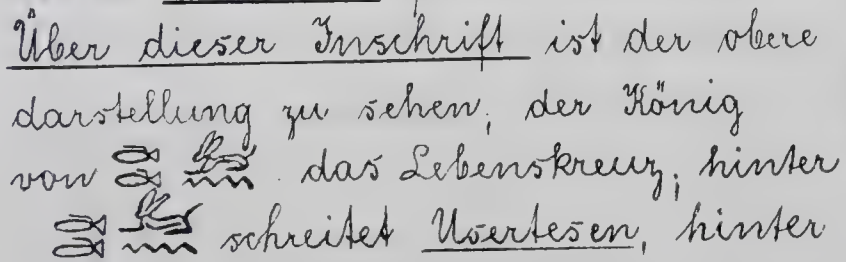 Über dieser Inschrift ist der obere
darstellung zu sehen, der König
von 𓃹𓈖 das Lebenskreuz, hinter
𓃹𓈖 schreitet Usertesen, hinter